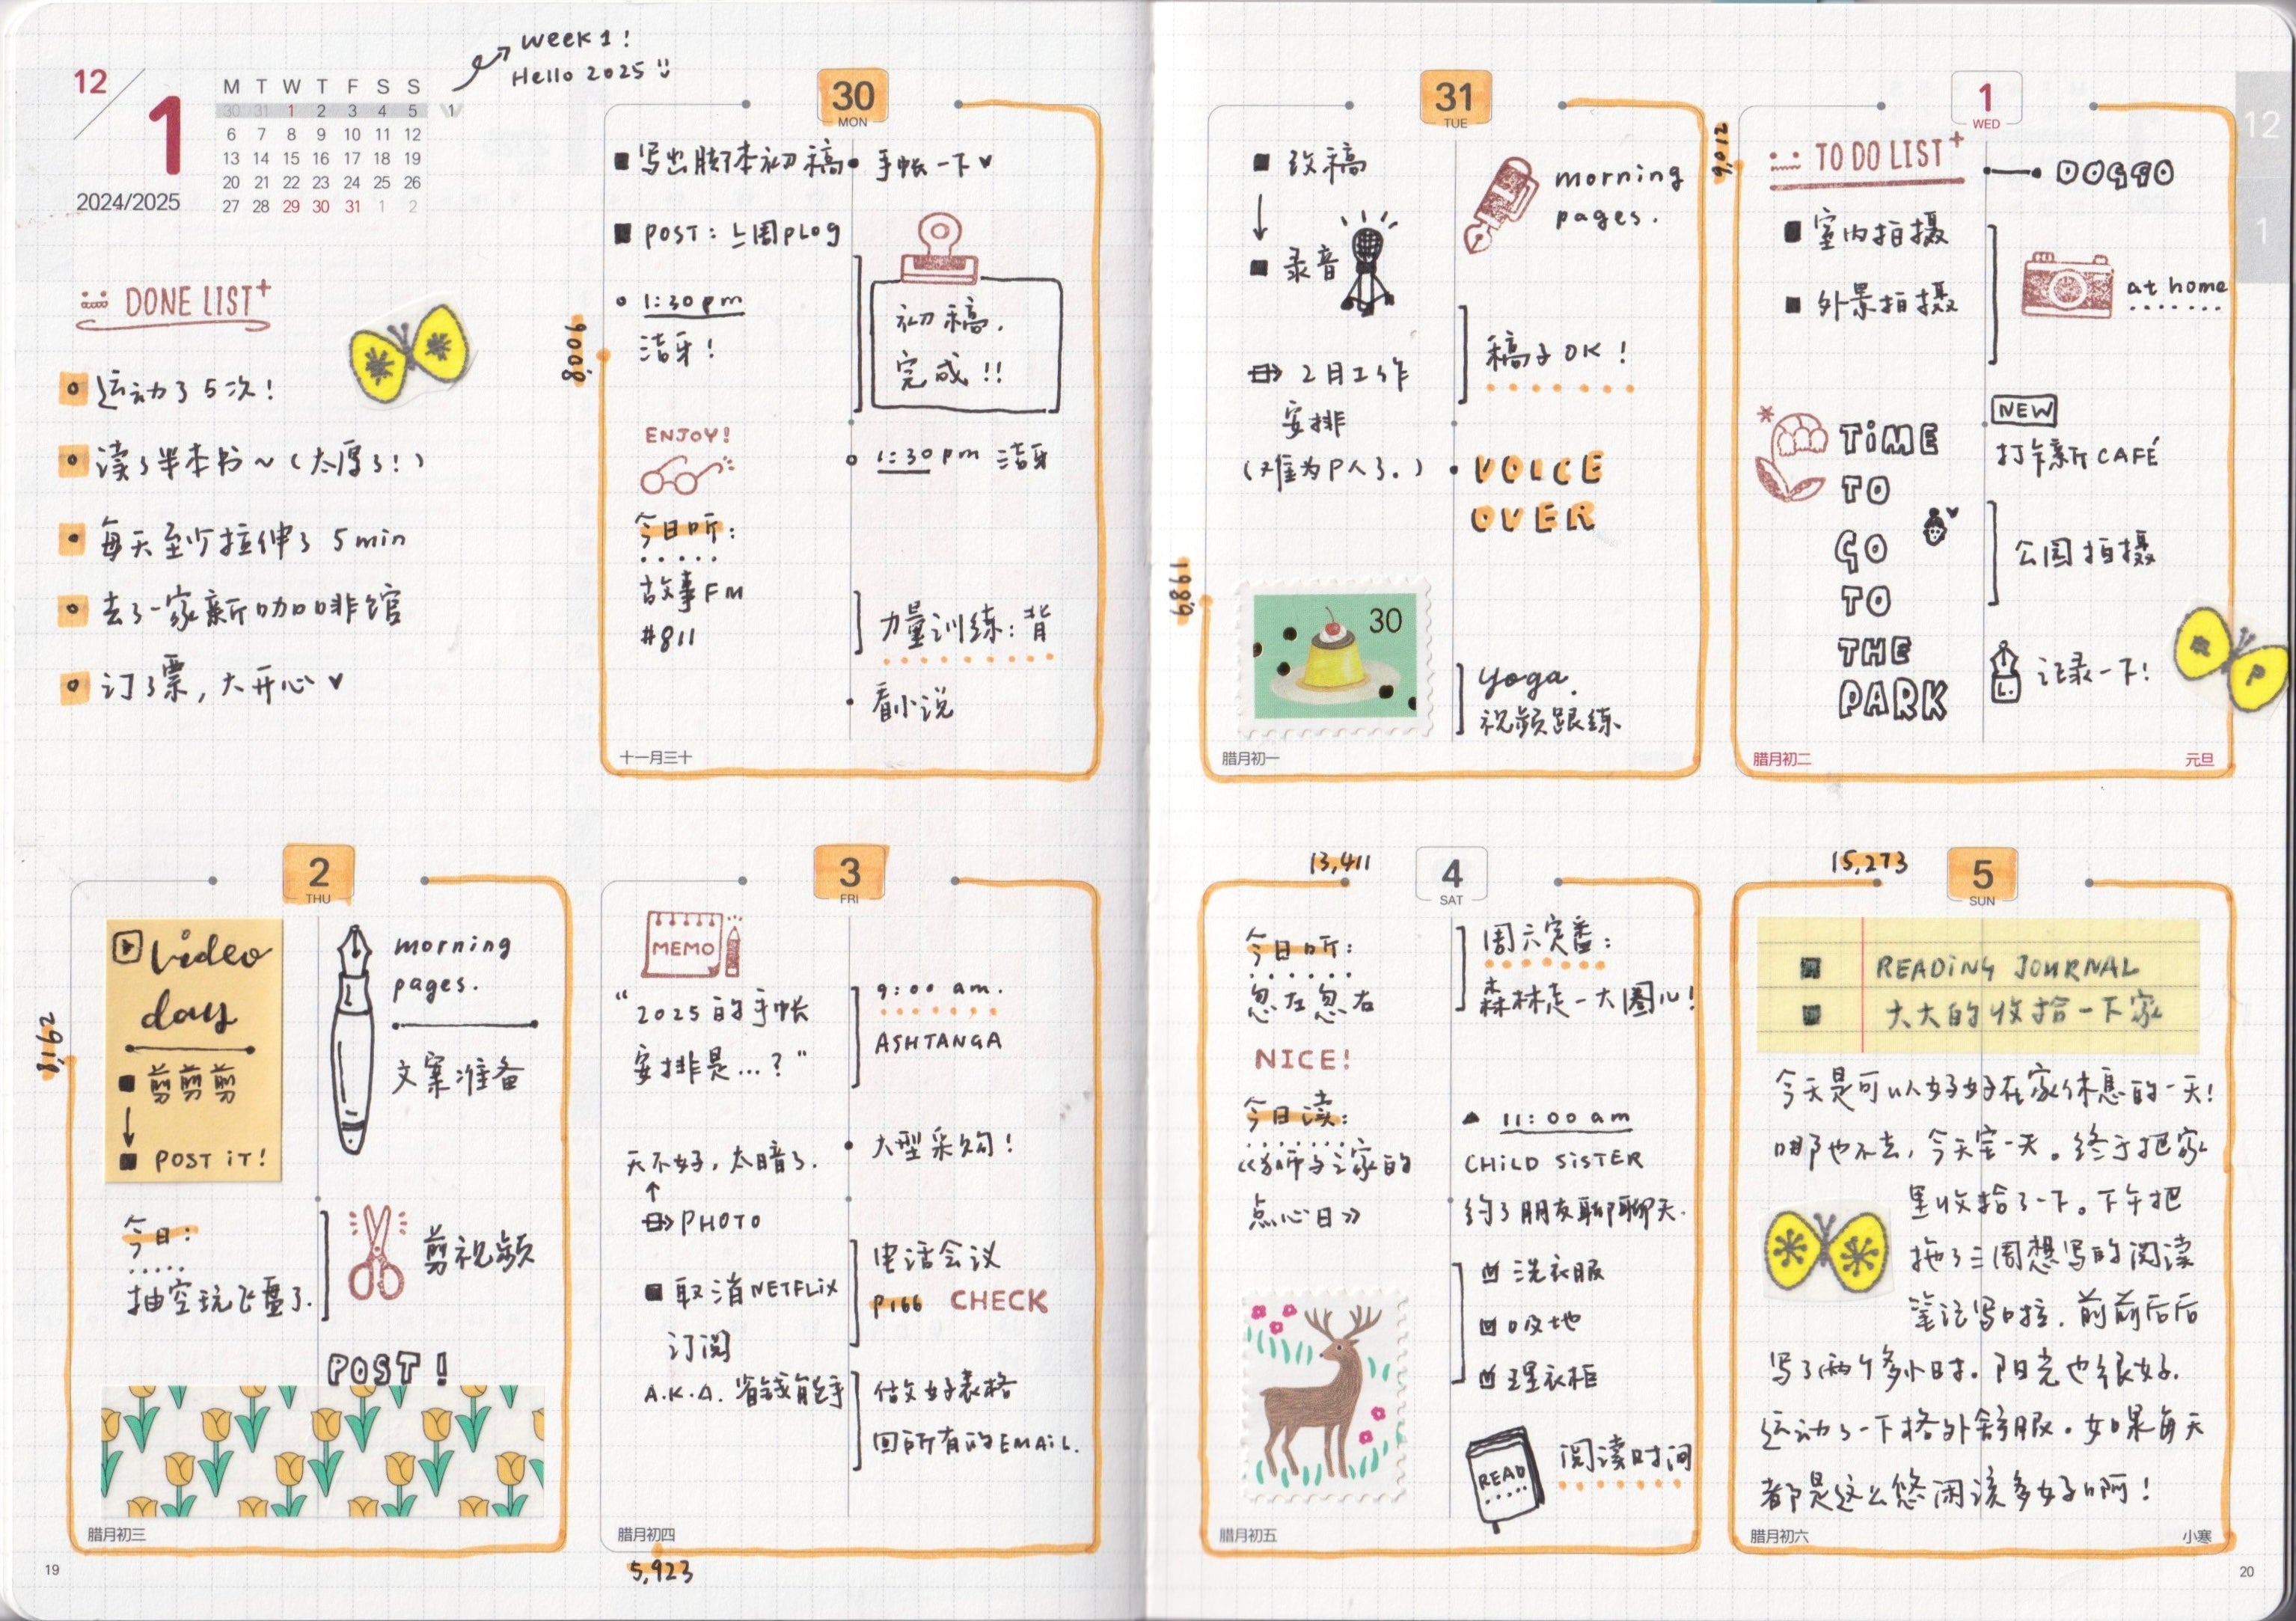 week 1!
Hello 2025
12
1
2024/2025
M T W T F S S
30 31 1 2 3 4 5 1
6 7 8 9 10 11 12
13 14 15 16 17 18 19
20 21 22 23 24 25 26
27 28 29 30 31 1 2
DONE LIST+
运动了5次!
读了半本书~(太厚了!)
每天至少拉伸了 5 min
去了一家新咖啡馆
订了票,大开心
30
MON
8,006
写出脚本初稿
POST: 上周PLOG
1:30pm
洁牙!
ENJOY!
今日听:
故事FM
#811
手帐一下
初稿.
完成!!
1:30 pm 洁牙
力量训练:背
看小说
十一月三十
31
TUE
1,989
改稿
录音
2月工作
安排
(难为P人了.)
30
morning
pages.
稿子OK!
VOICE
OVER
yoga.
视频跟练
腊月初一
1
WED
9,012
TO DO LIST+
室内拍摄
外景拍摄
TiME
TO
GO
TO
THE
PARK
DOGGO
at home
NEW
打卡新CAFÉ
公园拍摄
记录一下!
腊月初二
元旦
12
1
2
THU
8,162
Video
day
剪剪剪
POST iT!
今日:
抽空玩飞盘了.
morning
pages.
文案准备
剪视频
POST!
腊月初三
3
FRI
MEMO
"2025的手帐
安排是...?"
天不好,太暗了.
PHOTO
取消NETFLiX
订阅
A.K.A. 省钱能手
9:00 am.
ASHTANGA
大型采购!
电话会议
P166 CHECK
做好表格
回所有的EMAiL.
腊月初四
5,923
4
SAT
13,411
今日听:
忽左忽右
NICE!
今日读:
的
点心日》
周六完番:
森林走一大圈儿!
11:00 am
CHiLD SiSTER
约了朋友聊聊天.
洗衣服
吸地
理衣柜
READ
阅读时间
腊月初五
5
SUN
15,273
READiNG JOURNAL
大大的收拾一下家
今天是可以好好在家休息的一天!
哪也不去,今天宅一天。终于把家
里收拾了一下。下午把
拖了三周想写的阅读
笔记写啦.前前后后
写了两个多小时.阳光也很好.
运动了一下格外舒服.如果每天
都是这么悠闲该多好啊!
腊月初六
小寒
19
20